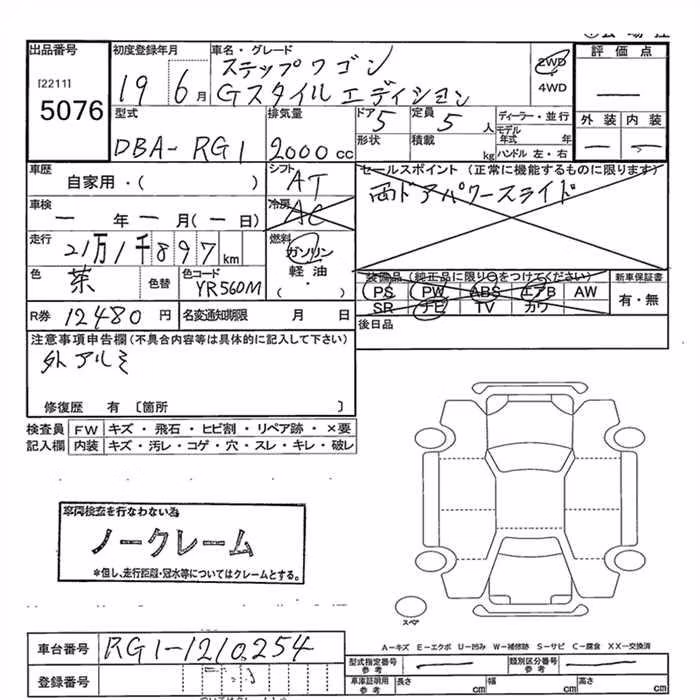 出品番号 初度登録年月 車名・グレード 評価点
[2211]
5076
19 6月
ステップワゴン
Gスタイルエディション
2WD
4WD
型式 排気量 ドア 定員 ディーラー・並行 外装 内装
DBA-RG1 2000cc 5 5人 モデル年式 年
形状 積載 kg ハンドル 左・右
車歴 シフト セールスポイント (正常に機能するものに限ります)
自家用・( ) AT 両ドアパワースライド
車検 冷房
一年一月(一日) AC
走行 燃料
21万1千897km ガソリン
軽油
・( )
色 色替 色コード 装備品(純正品に限り○をつけてください) 新車保証書
茶 YR560M PS PW ABS エアB AW 有・無
SR ナビ TV カワ
R券 12480円 名変通知期限 月 日 後日品
注意事項申告欄(不具合内容等は具体的に記入して下さい)
外アルミ
修復歴 有 〔箇所 〕
検査員 FW キズ・飛石・ヒビ割・リペア跡・×要
記入欄 内装 キズ・汚レ・コゲ・穴・スレ・キレ・破レ
車両検査を行なわない為
ノークレーム
*但し、走行距離・冠水等についてはクレームとする。
スペア
A−キズ E−エクボ U−凹み W−補修跡 S−サビ C−腐食 XX−交換済
車台番号 RG1-1210254 型式指定番号 参考 類別区分番号 参考
登録番号 車庫証明用 参考 長さ cm 幅 cm 高さ cm